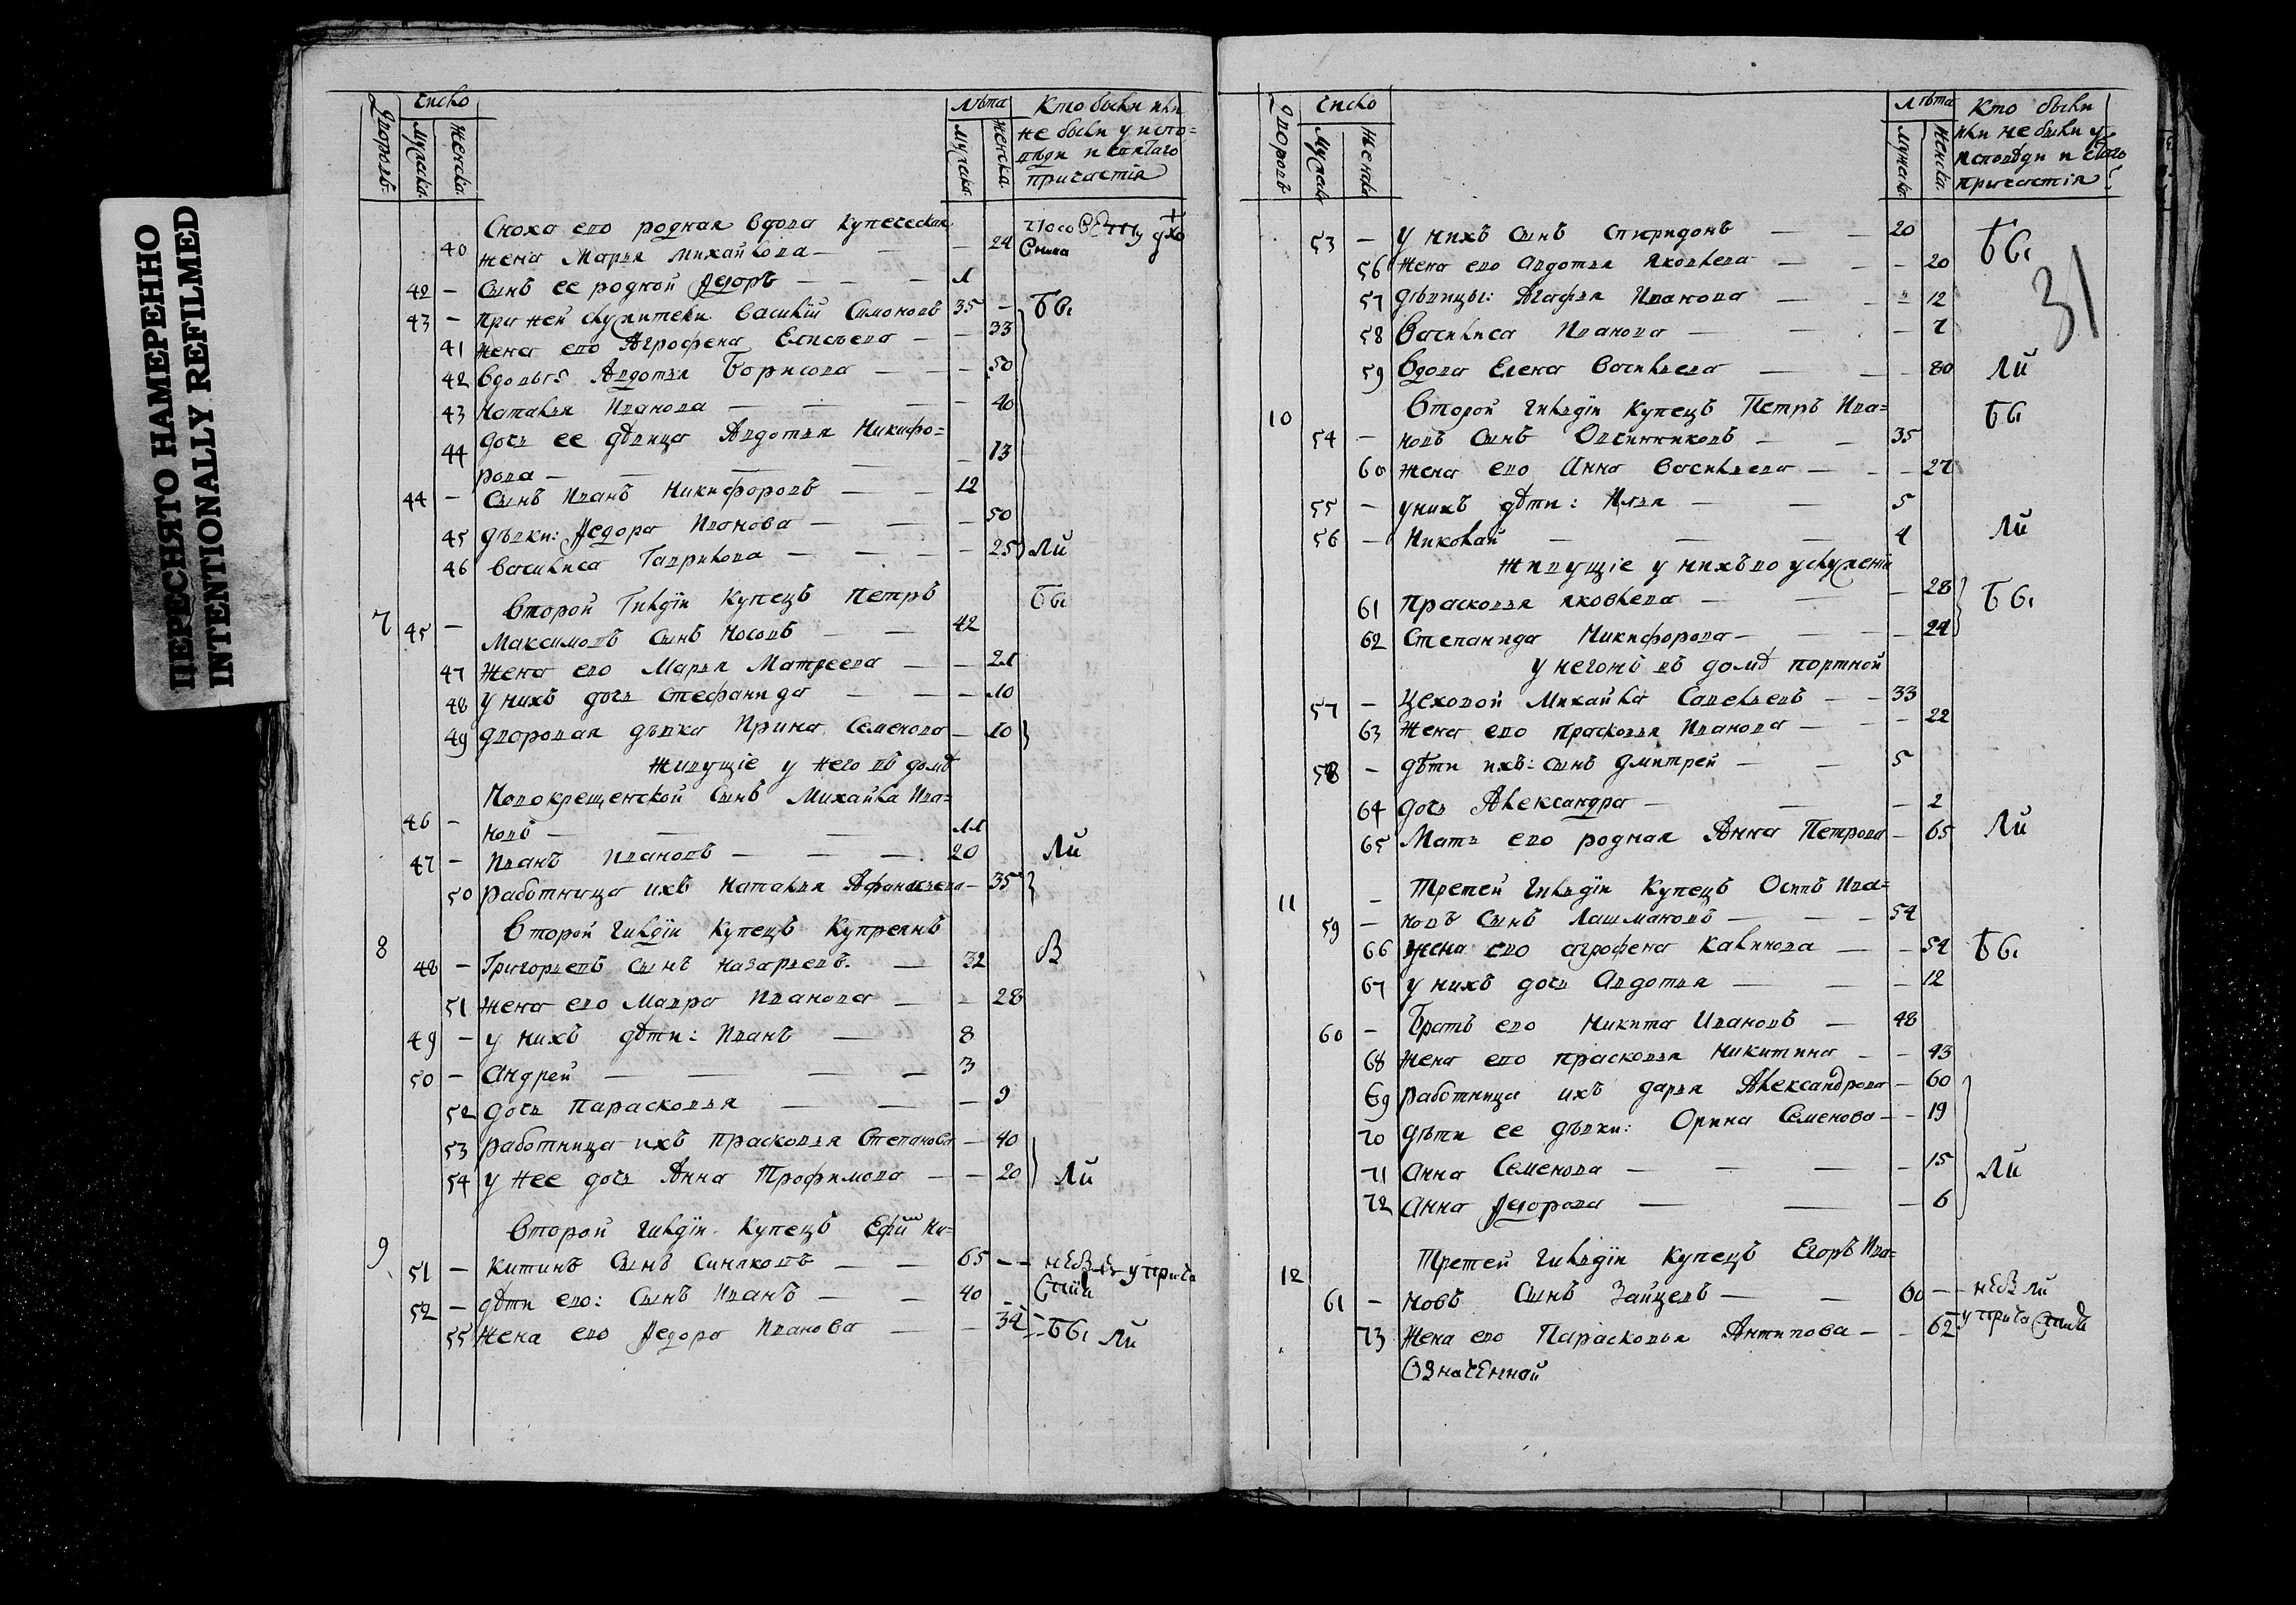 ПЕРЕСНЯТО НАМЕРЕННО
INTENTIONALLY REFILMED
Дворовъ. Число Мужска. Женска. Лѣта Мужска. Женска. Кто были или
не были у испо=
вѣди и святаго
причастія
Сноха его родная вдова купеческая
40 жена Марья Михайлова — — 24
42 — Сынъ ее родной Ѳедоръ — — 1
43 — При ней служители Василій Симоновъ 35 — бы
41 жена его Агрофена Елисѣева — — 33
42 вдовы: Авдотья Борисова — — 50
43 Наталья Иванова — — 40
дочь ее дѣвица Авдотья Никифо=
44 рова — — 13
44 — Сынъ Иванъ Никифоровъ — — 12
45 дѣвки: Ѳедора Иванова — — 50
46 Василиса Гаврилова — — 25 ли
Второй Гилдіи Купецъ Петръ бы
7 45 — Максимовъ Сынъ Носовъ — — 42
47 Жена его Марья Матвеева — — 21
48 у нихъ дочь Стефанида — — 10
49 дворовая дѣвка Ирина Семенова — 10
живущіе у него въ домѣ
Новокрещенской Сынъ Михайла Ива=
46 — новъ — — 11
47 — Иванъ Ивановъ — — 20 ли
50 работница ихъ Наталья Афанасьева — 35
Второй Гилдіи Купецъ Купреянъ
8 48 — Григорьевъ Сынъ Назарьевъ. — 32 в
51 жена его Мавра Иванова — — 28
49 — у нихъ дѣти: Иванъ — 8
50 — Андрей — — 3
52 дочь Парасковья — — 9
53 работница ихъ Прасковья Степанова — 40
54 у нее дочь Анна Трофимова — — 20 ли
Второй Гилдіи Купецъ Ефим Ни=
9 51 — китинъ Сынъ Синяковъ — — 65 — —
52 — дѣти его: Сынъ Иванъ — — 40
55 жена его Ѳедора Иванова — — 34 бы ли
Дворовъ Число Мужска Женска Лѣта Мужска. Женска. Кто были
или не были у
исповѣди и святаго
причастія
31
53 — у нихъ Сынъ Спиридонъ — — 20 бы
56 жена его Авдотья Яковлева — — 20
57 дѣвицы: Агафья Иванова — — 12
58 Василиса Иванова — — 7
59 Вдова Елена Васильева — — 80 ли
Второй Гилдіи Купецъ Петръ Ива= бы
10 54 — новъ Сынъ Овсянниковъ — — 35
60 жена его Анна Васильева — — 27
55 — у нихъ дѣти: Илья — — 5
56 — Николай — — 4 ли
живущіе у нихъ во услуженіи
61 Прасковья Яковлева — — 28 бы
62 Степанида Никифорова — — 24
у негожъ въ домѣ портной
57 — Цеховой Михайла Савельевъ — — 33
63 Жена его Прасковья Иванова — — 22
58 — дѣти ихъ: сынъ Дмитрей — — 5
64 дочь Александра — — 2
65 Мать его родная Анна Петрова — 65 ли
Третей Гильдіи Купецъ Осипъ Ива=
11 59 — новъ Сынъ Лашмановъ — — 54
66 жена его Агрофена Калинова — — 54 бы
67 у нихъ дочь Авдотья — — 12
60 — Братъ его Никита Ивановъ — 48
68 жена его Прасковья Никитина — — 43
69 работница ихъ Дарья Александрова — 60
70 дѣти ее дѣвки: Орина Семенова — — 19
71 Анна Семенова — — 15 ли
72 Анна Ѳедорова — — 6
Третей Гильдіи Купецъ Егоръ Ива=
12 61 — новъ Сынъ Зайцевъ — — 60 —
73 Жена его Парасковья Антипова — — 62
Означенной